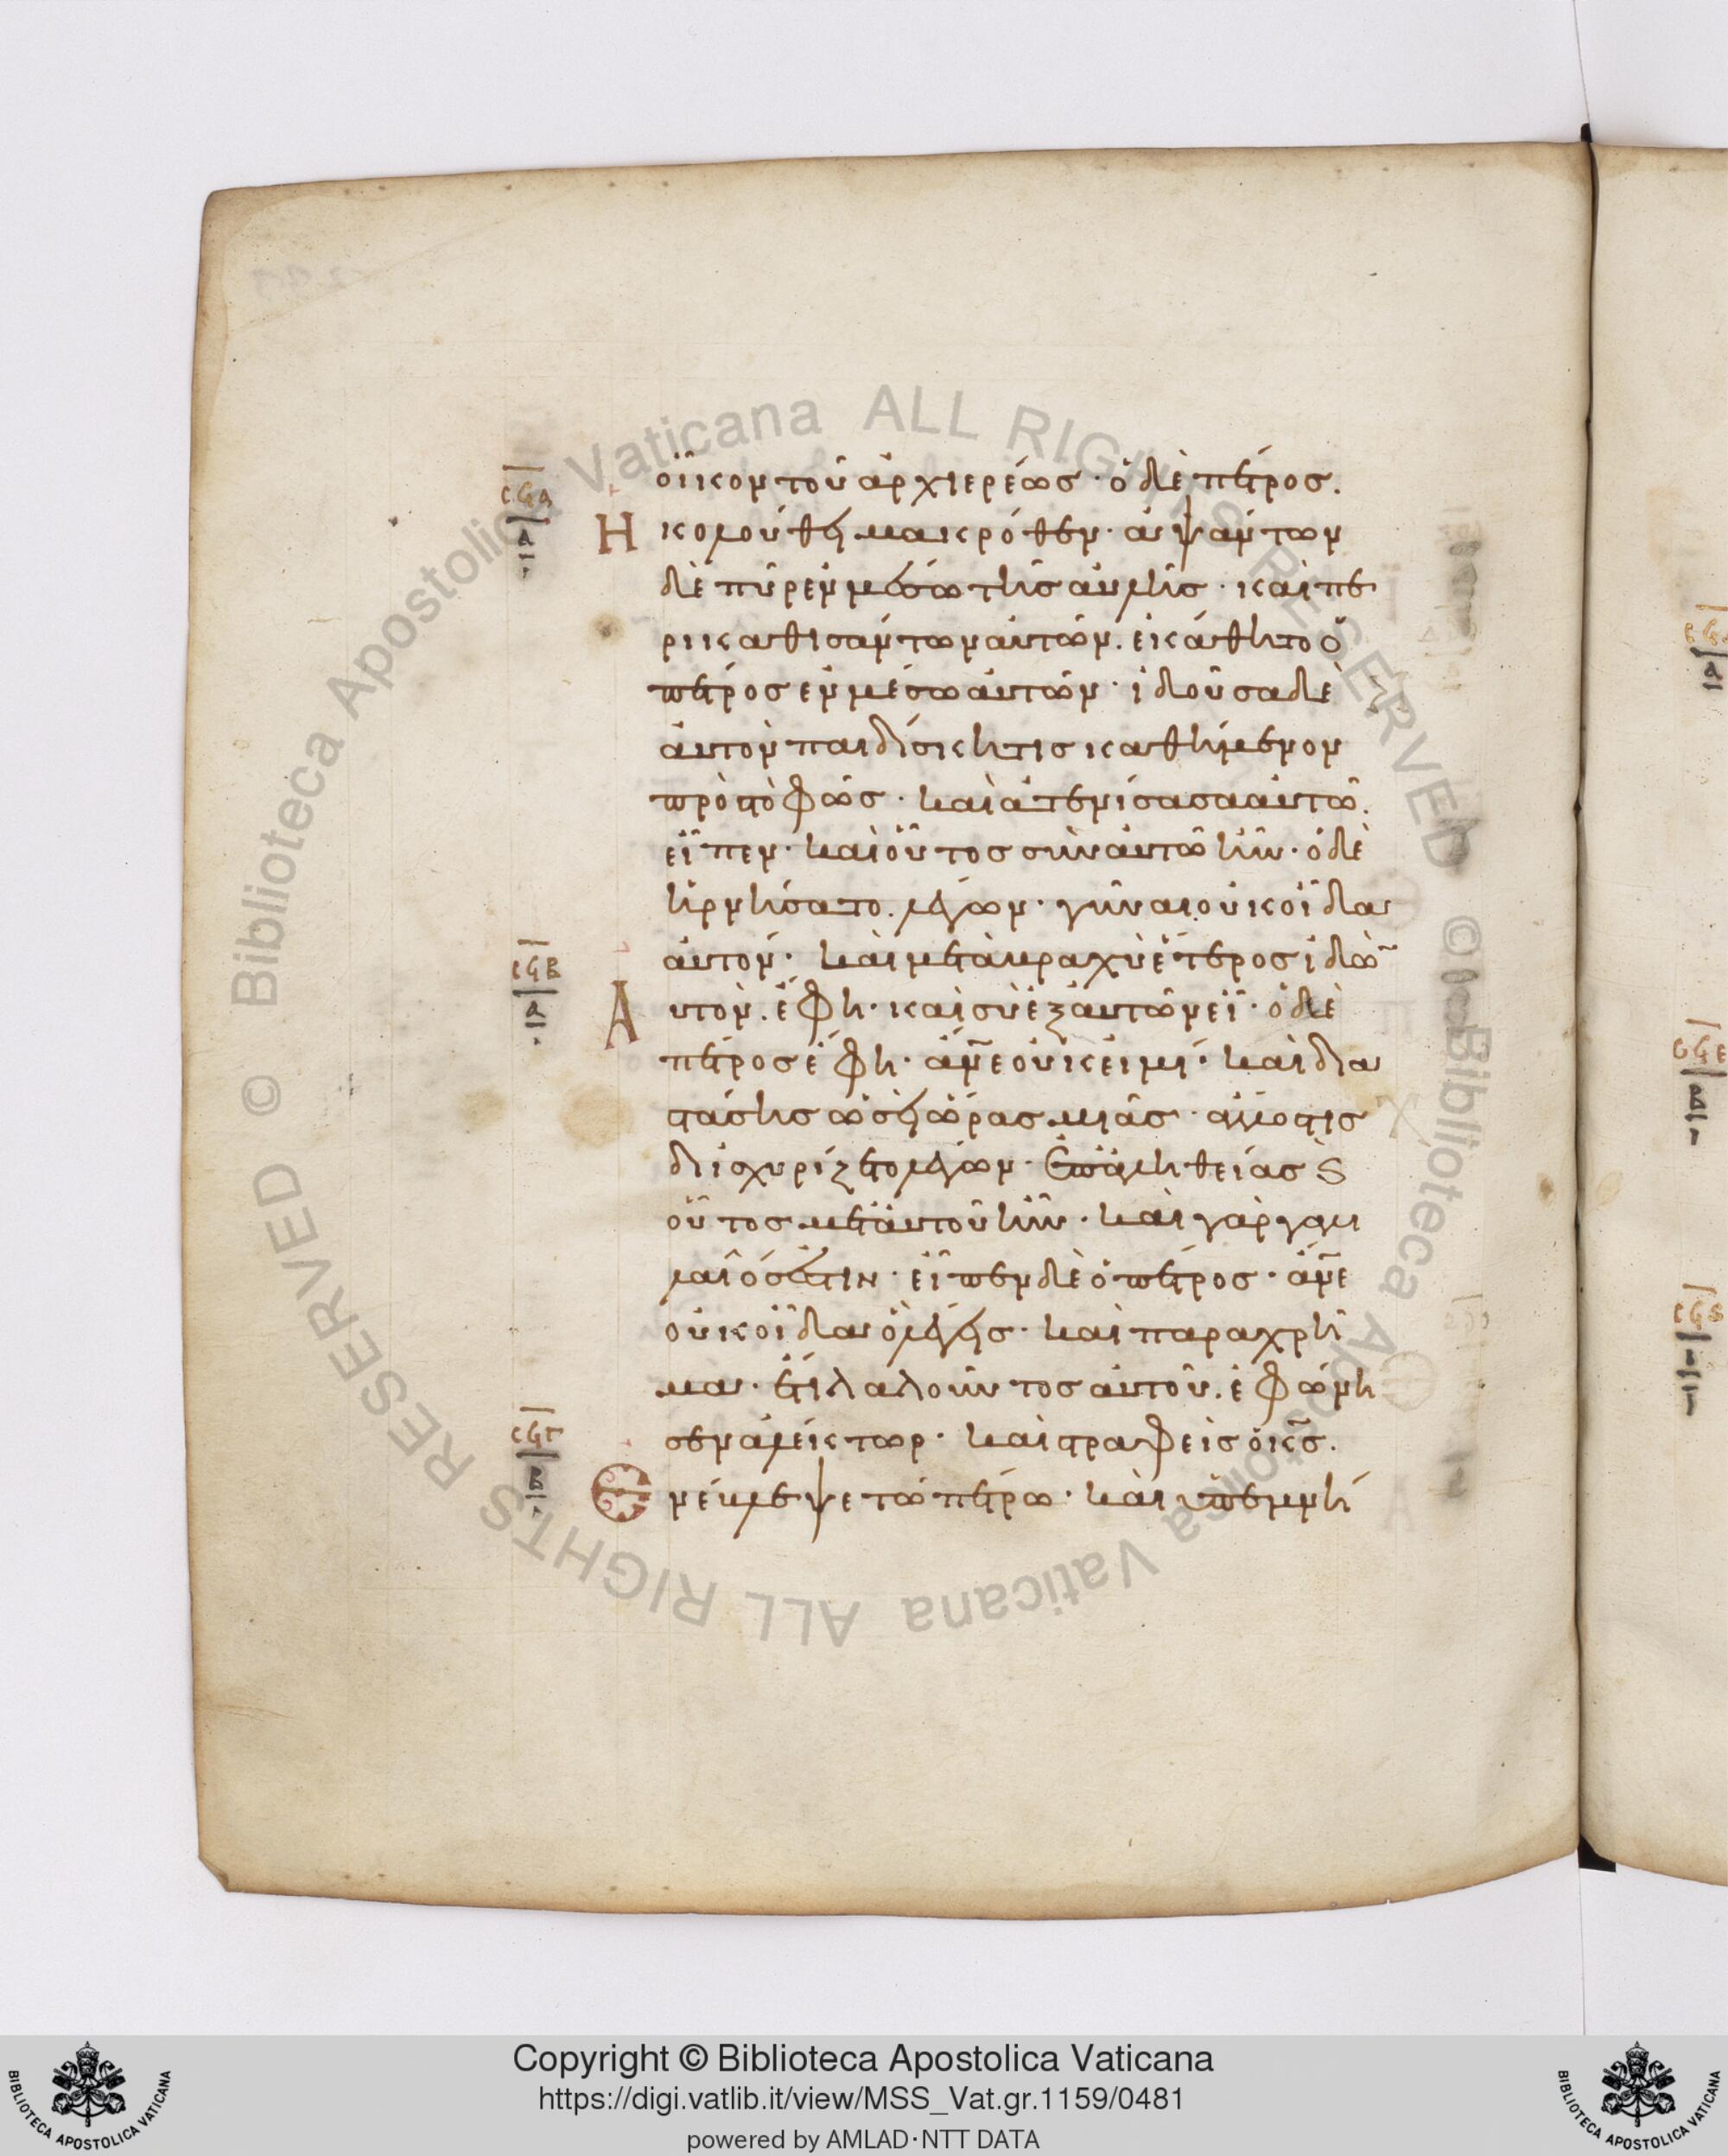 οἶκον τοῦ ἀρχιερέως· ὁ δὲ πέτρος.
ϹϞΑ
Α
Η κολούθη μακρόθεν· ἁψάντων
δὲ πῦρ ἐν μέσω τῆς αὐλῆς· καὶ πε
ρικαθισάντων αὐτῶν. ἐκάθητο ὁ
πέτρος ἐν μέσω αὐτῶν· ἰδοῦσα δὲ
αὐτὸν παιδίσκη τις καθήμενον
πρὸς τὸ φῶς· καὶ ἀτενίσασα αὐτῶ.
εἶπεν· καὶ οὗτος σὺν αὐτῶ ἦν· ὁ δὲ
ἠρνήσατο. λέγων· γύναι οὐκ οἶδα
αὐτόν· καὶ μετὰ βραχὺ ἕτερος ἰδὼ̄
ϹϞΒ
Α
Α υτὸν. ἔφη· καὶ σὺ ἐξ αὐτῶν εἶ· ὁ δὲ
πέτρος ἔφη· ἄν̄ε οὐκ εἰμί· καὶ δια
στάσης ὡσῆ ὥρας μιᾶς· ἄλλος τις
διϊσχυρίζετο λέγων· ἐπ' ἀληθείας ϗ
οὗτος μετ' αὐτοῦ ἦν· καὶ γὰρ γαλι
λαῖός ἐστιν· εἶπεν δὲ ὁ πέτρος· ἄν̄ε
οὐκ οἶδα ὃ λέγης· καὶ παραχρῆ
μα· ἔτι λαλοῦντος αὐτοῦ. ἐφώνη
σεν ἀλέκτωρ· καὶ στραφεὶς ὁ κ̄ς.
ϹϞΓ
Β
Ε νέβλεψε τῶ πέτρω· καὶ ὑπεμνή
Copyright © Biblioteca Apostolica Vaticana
https://digi.vatlib.it/view/MSS_Vat.gr.1159/0481
powered by AMLAD·NTT DATA
BIBLIOTECA APOSTOLICA VATICANA
BIBLIOTECA APOSTOLICA VATICANA
© Biblioteca Apostolica Vaticana ALL RIGHTS RESERVED © Biblioteca Apostolica Vaticana ALL RIGHTS RESERVED